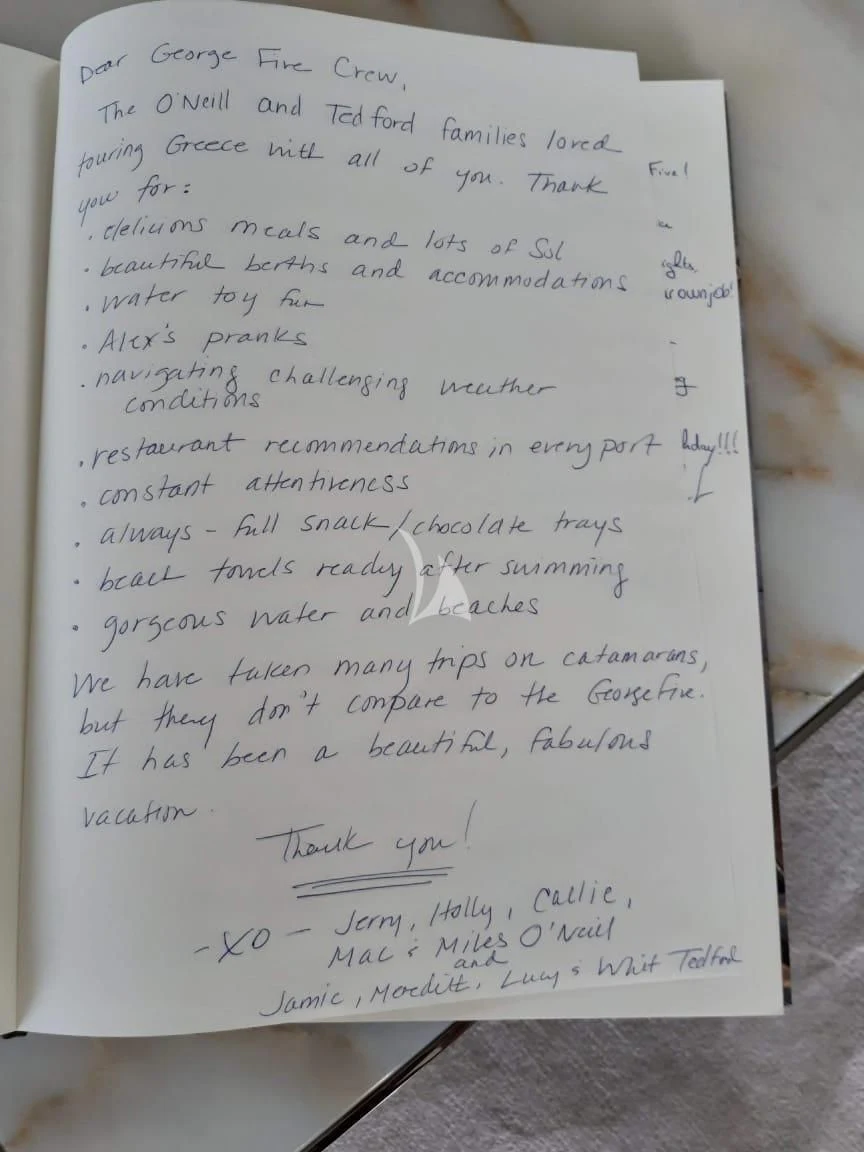 Dear George Five Crew,
The O'Neill and Tedford families loved
touring Greece with all of you. Thank
you for:
· delicious meals and lots of Sol
· beautiful berths and accommodations
· water toy fun
· Alex's pranks
· navigating challenging weather
conditions
· restaurant recommendations in every port
· constant attentiveness
· always - full snack/chocolate trays
· beach towels ready after swimming
· gorgeous water and beaches
We have taken many trips on catamarans,
but they don't compare to the George Five.
It has been a beautiful, fabulous
vacation.
Thank you!
- XO - Jerry, Holly, Callie,
Mac & Miles O'Neill
and
Jamie, Meredith, Lucy & Whit Tedford
Five!